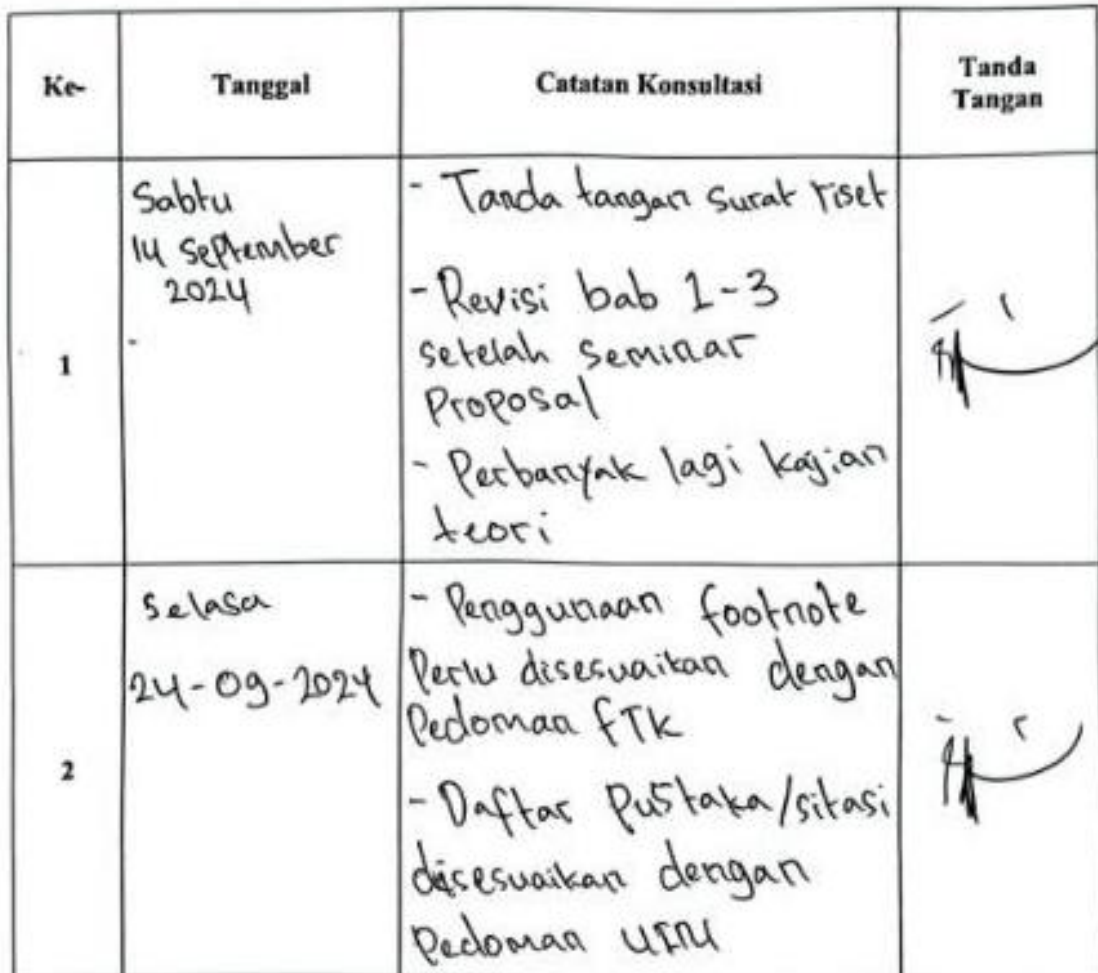 Ke-
Tanggal
Catatan Konsultasi
Tanda
Tangan
1
Sabtu
14 September
2024
- Tanda tangan surat riset
- Revisi bab 1-3
setelah seminar
Proposal
- Perbanyak lagi kajian
teori
2
Selasa
24-09-2024
- Penggunaan footnote
Perlu disesuaikan dengan
Pedoman FTK
- Daftar Pustaka/sitasi
disesuaikan dengan
Pedoman